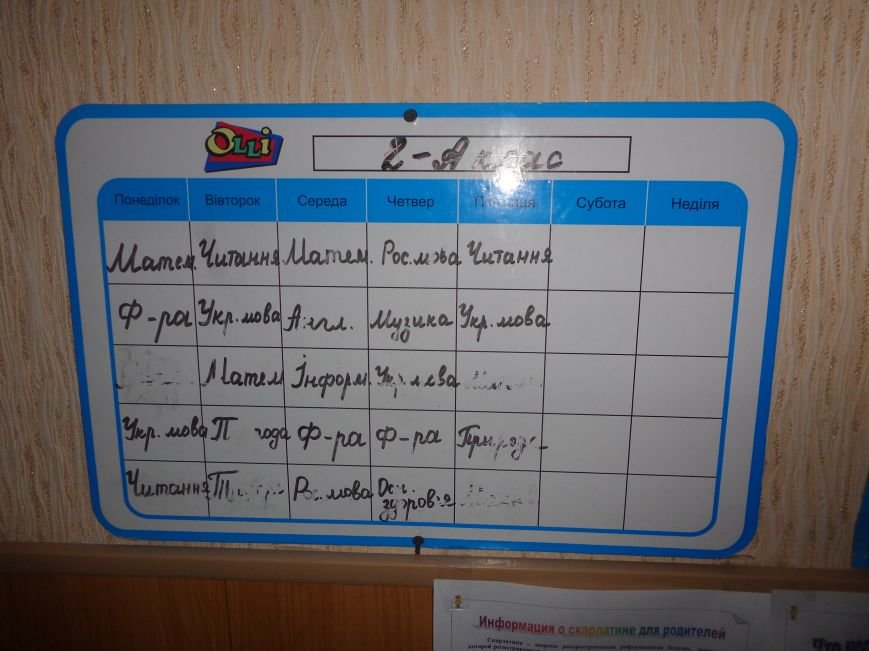 OLLi
2-А клас
Понеділок Вівторок Середа Четвер П'ятниця Субота Неділя
Матем. Читання Матем. Рос.мова Читання
Ф-ра Укр.мова Англ. Музика Укр.мова
Матем Інформ. Укр.мова
Укр.мова П года Ф-ра Ф-ра Природо-
Читання Рос.мова Осн.
здоров'я
Информация о скарлатине для родителей
Скарлатина –
Что